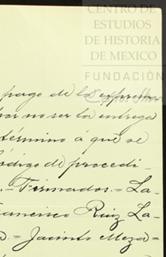 CENTRO DE
ESTUDIOS
DE HISTORIA
DE MEXICO
FUNDACIÓN
pago de
por no ser la entrega
término á que se
ódigo de procedi-
Firmados.= La-
rancisco Ruiz La-
= Jacinto Meza=